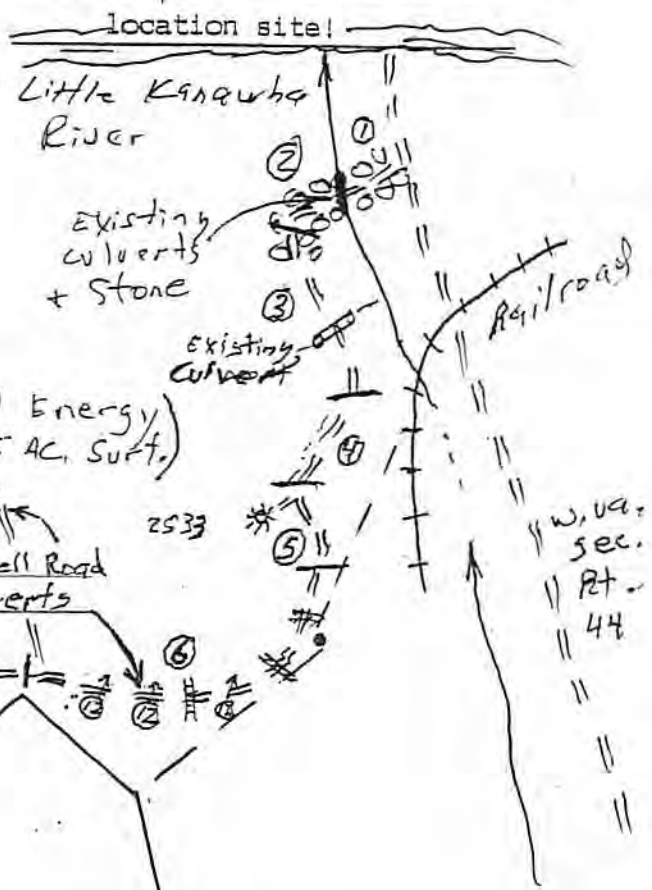 location site!
Little Kanawha
River
①
②
Existing
culverts
+ Stone
③
Existing
Culvert
Railroad
Energy
AC. Surf.)
④
2533
⑤
W. Va.
Sec.
Rt.
44
ell Road
verts
⑥
⑫ ⑫ ⑫